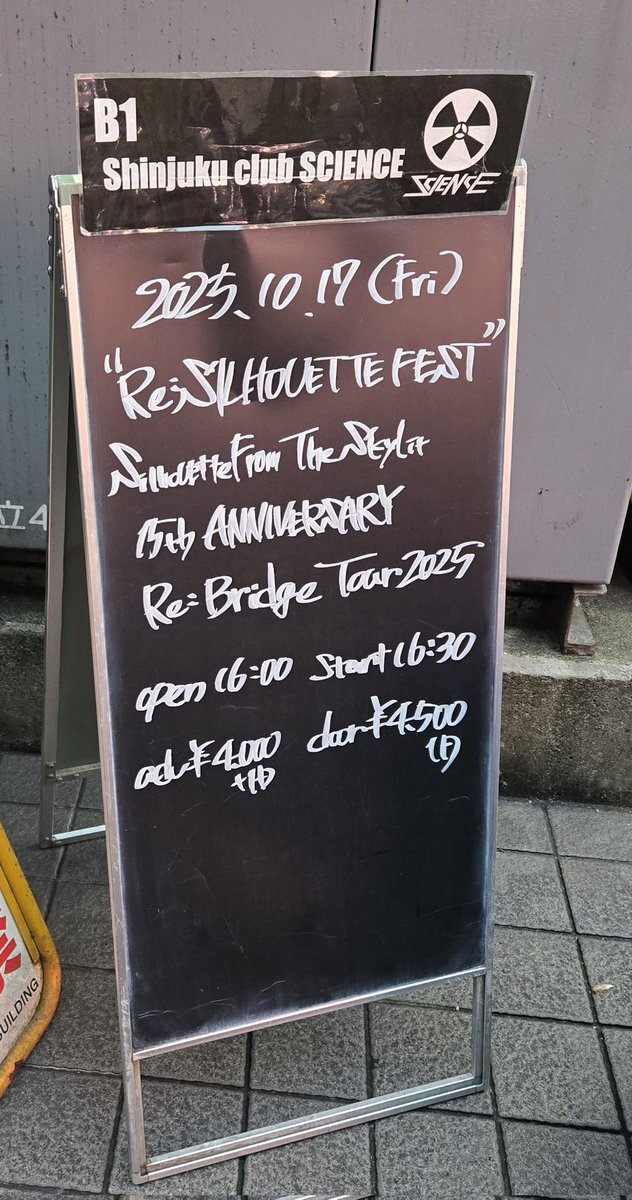 B1
Shinjuku club SCIENCE
SCIENCE
2025.10.17 (Fri)
"Re;SILHOUETTE FEST"
Silhouette From The Skylit
15th ANNIVERSARY
Re:Bridge Tour 2025
open 16:00 start 16:30
adv ¥4.000 door ¥4.500
+1D
立4
BUILDING